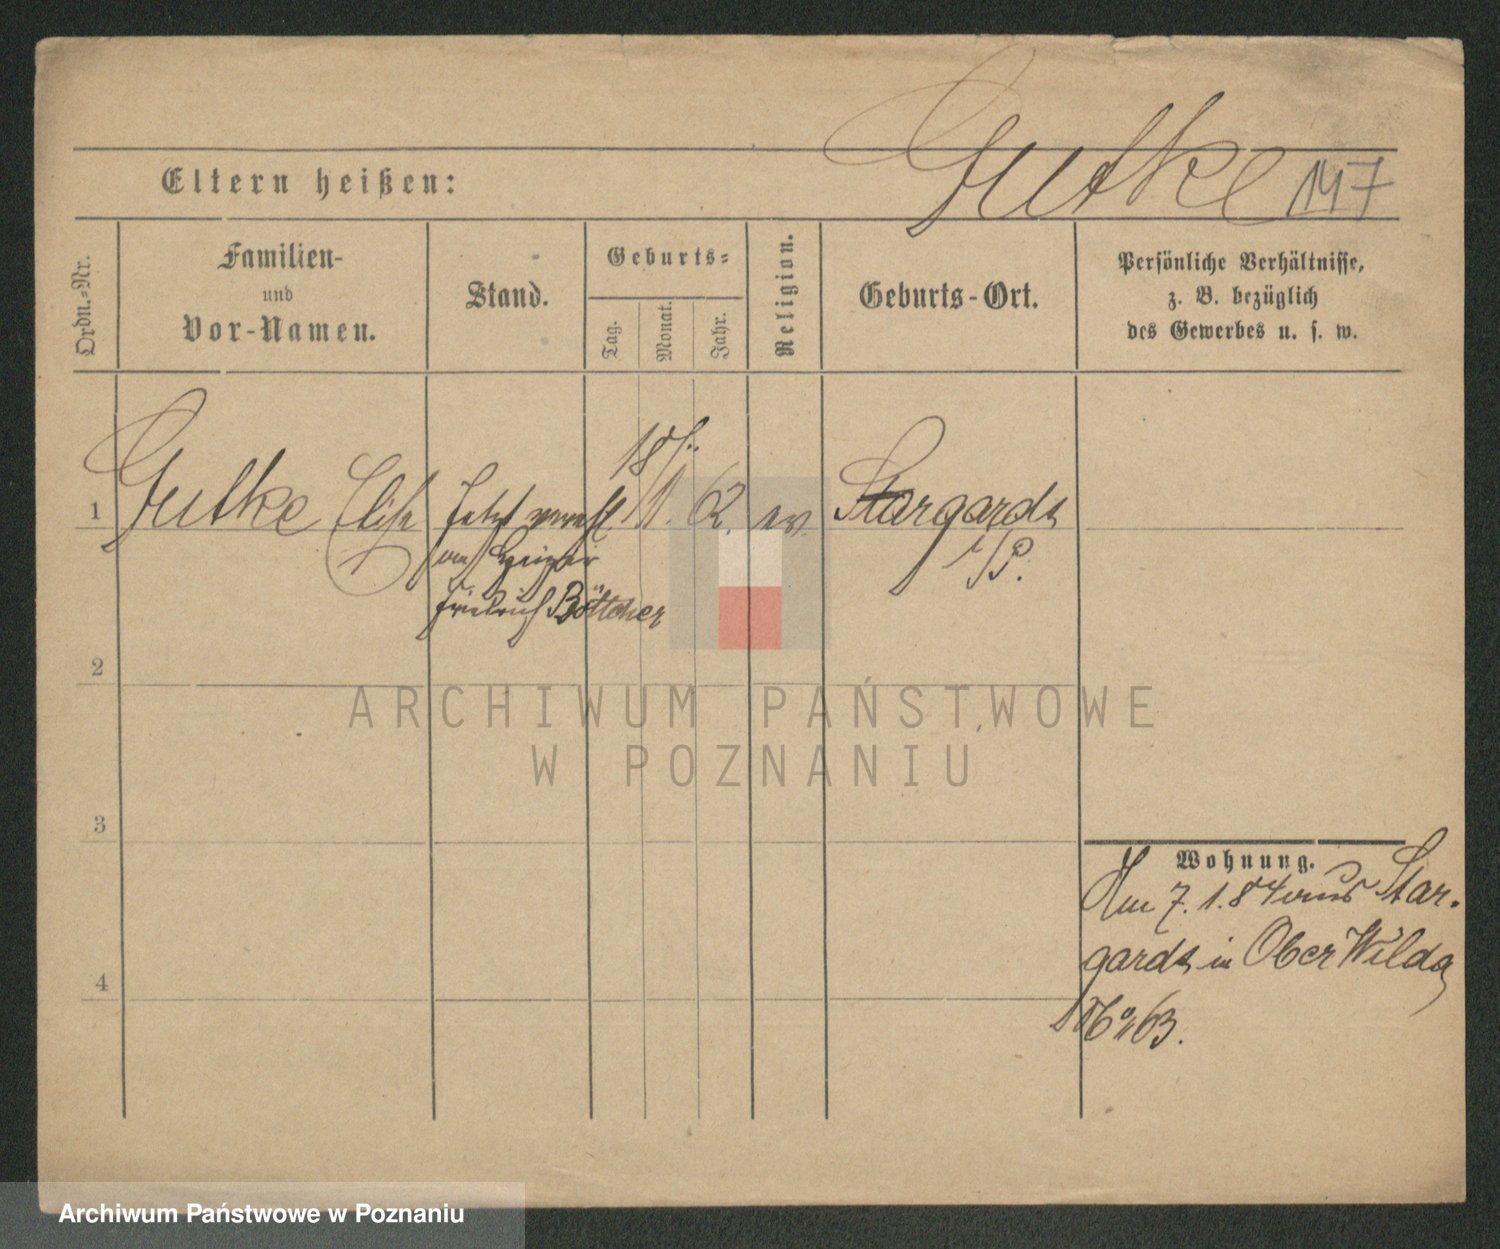 Gutke 147
Eltern heißen:
Ordn.-Nr.
Familien-
und
Vor-Namen.
Stand.
Geburts-
Tag.
Monat.
Jahr.
Religion.
Geburts-Ort.
Persönliche Verhältnisse,
z. B. bezüglich
des Gewerbes u. s. w.
1 Gutke Elise jetzt verehl. 18/1. 62. ev. Stargardt
an Heizer i/P.
Friedrich Böttcher
2
3
4
Wohnung.
Am 7.1.84 aus Star-
gardt in Ober Wilda
No 63.
ARCHIWUM PAŃSTWOWE
W POZNANIU
Archiwum Państwowe w Poznaniu